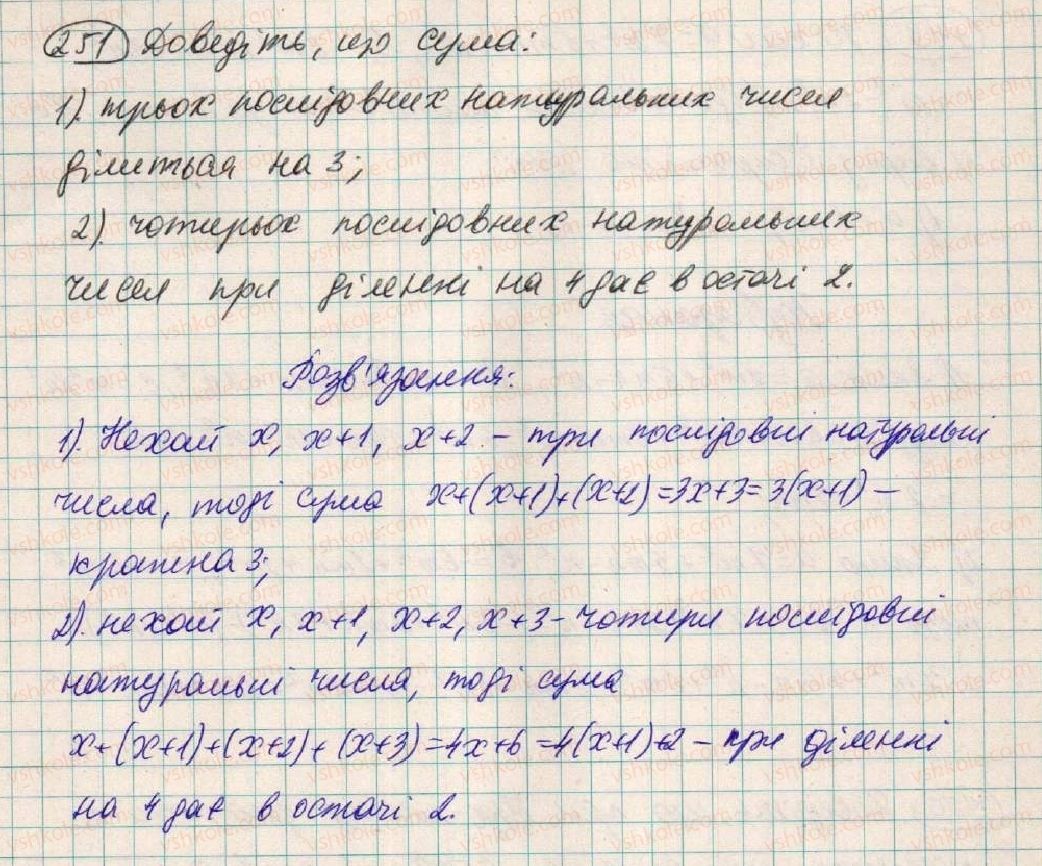 251 Доведіть, що сума:
1). трьох послідовних натуральних чисел
ділиться на 3;
2). чотирьох послідовних натуральних
чисел при діленні на 4 дає в остачі 2.
Розв'язання:
1). Нехай x, x+1, x+2 - три послідовні натуральні
числа, тоді сума x+(x+1)+(x+2)=3x+3=3(x+1) –
кратна 3;
2). нехай x, x+1, x+2, x+3 - чотири послідовні
натуральні числа, тоді сума
x+(x+1)+(x+2)+(x+3)=4x+6=4(x+1)+2 – при діленні
на 4 дає в остачі 2.